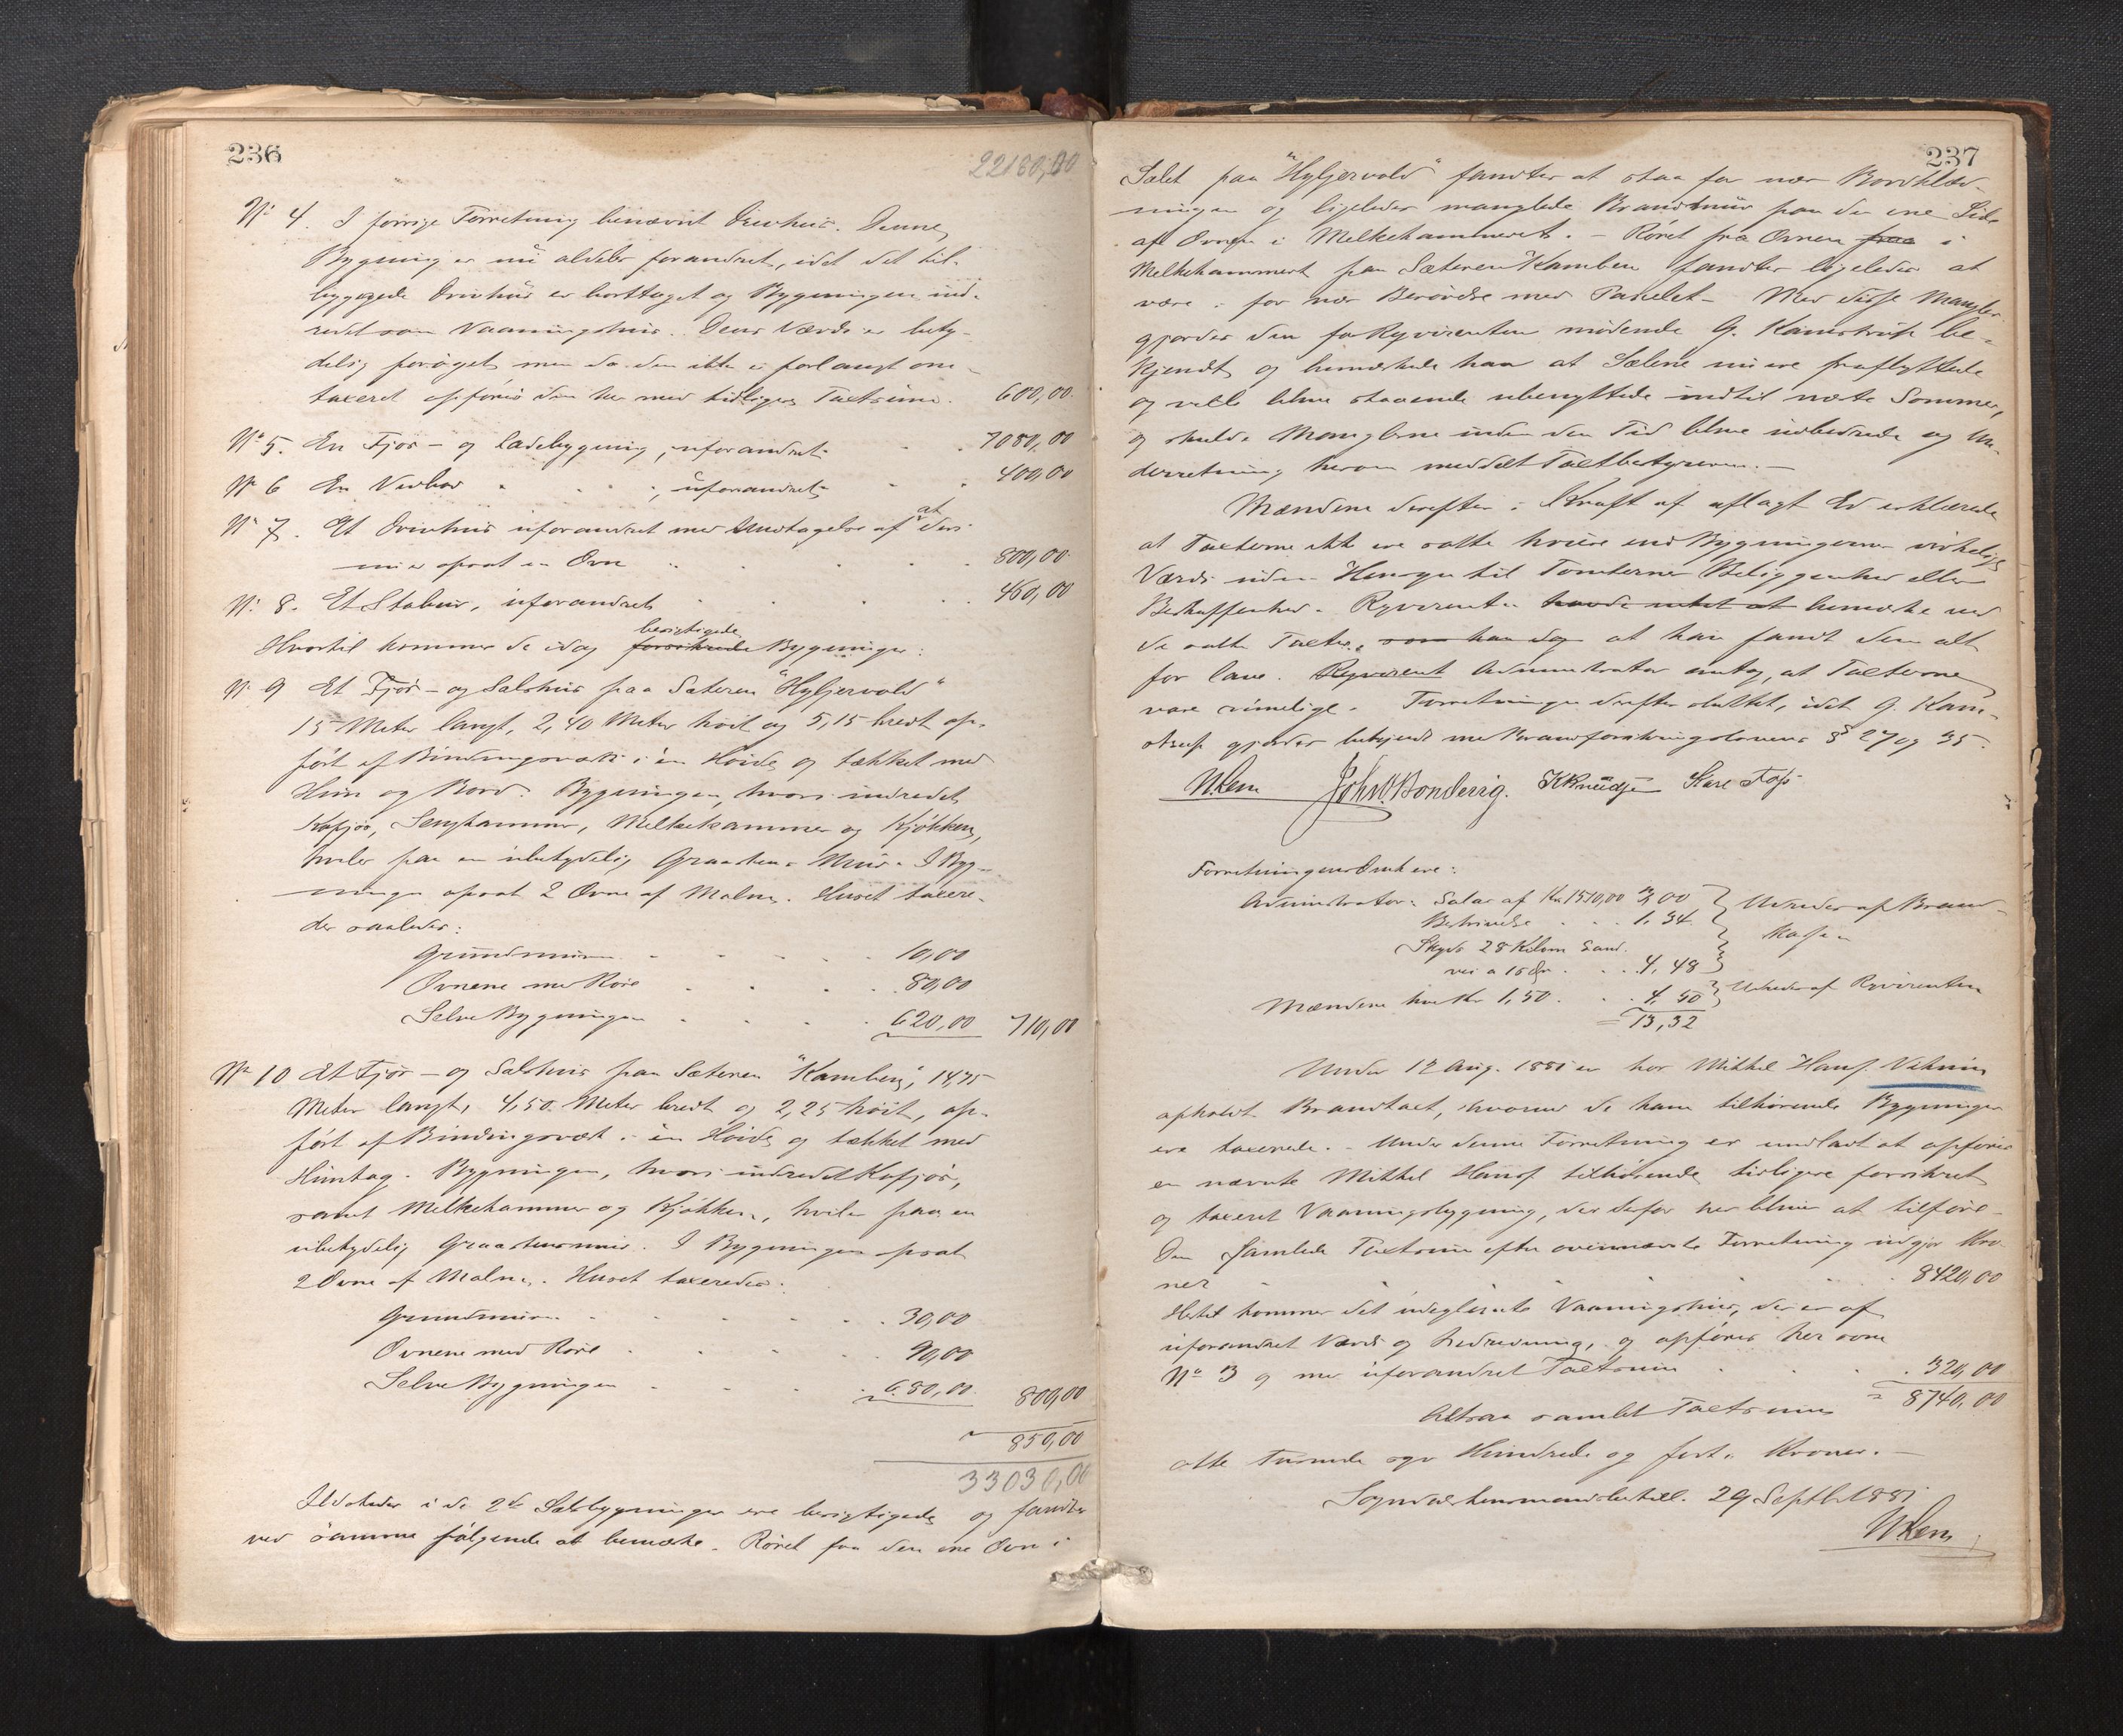 236
22180,00
No 4. I forrige Forretning benævnt Drivhus. Denne
Bygning er nu aldeles forandret, idet det til-
byggede Drivhus er borttaget og Bygningen ind-
redet som Vaaningshus. Dens Værdi er bety-
delig forøget men da den ikke er forlangt om-
taxeret opføres den her med tidligere Taxtsum. 600,00.
No 5. En Fjøs- og ladebygning, uforandret . . 7080,00
No 6 En . . . , uforandret . . 400,00
No 7. Et Drivhus uforandret med Undtagelse af at deri
nu er opsat en Ovn . . . . 800,00
No 8. Et Stabur, uforandret . . . . 460,00
Hvortil kommer de idag forsikrede besigtigede Bygninger:
No 9 Et Fjøs- og Selshus paa Sæteren "Hyljervold"
15 Meter langt, 2,40 Meter høit og 5,15 bredt op-
ført af Bindingsværk i en Høide og tækket med
Hun og Bord. Bygningen, hvori indredet
Kofjøs, Sengkammer, Melkekammer og Kjøkken,
hviler paa en ubetydelig Graastens Mur. I Byg-
ningen opsat 2 Ovne af Malm. Huset taxere-
des saaledes:
Grundmuren . . . . 10,00
Ovnene med Rør . . . . 80,00
Selve Bygningen . . . . 620,00 710,00
No 10 Et Fjøs- og Selshus paa Sæteren "Kamben", 14,75
Meter langt, 4,50 Meter bredt og 2,25 høit, op-
ført af Bindingsværk i en Høide og tækket med
Huntag. Bygningen, hvori indredet Kofjøs,
samt Melkekammer og Kjøkken, hviler paa en
ubetydelig Graastensmur. I Bygningen opsat
2 Ovne af Malm. Huset taxeredes:
Grundmuren . . . . 30,00
Ovnene med Rør . . . . 90,00
Selve Bygningen . . . . 680,00 800,00
850,00
33030,00
Ildsteder i de 2de Selsbygninger ere besigtigede og fandtes
ved samme følgende at bemærke. Røret fra den ene Ovn i
237
Selet paa "Hyljervold" fandtes at staa for nær Bordklæd-
ningen og ligeledes manglede Brandmur paa den ene Side
af Ovnen i Melkekammeret. - Røret fra Ovnen fraa i
Melkekammeret paa Sæteren Kamben fandtes ligeledes at
være i for nær Berørelse med Panelet - Med disse Mangler
gjordes den for Rqvirenten mødende G. Kamstrup be-
kjendt og bemærkede han at Selene nu ere fraflyttede
og ville blive staaende ubenyttede indtil næste Sommer,
og skulde Manglerne inden den Tid blive udbedrede og Un-
derretning herom meddelt Taxtbestyreren. -
Mændene derefter i Kraft af aflagt Ed erklærede
at Taxterne ikke ere satte høiere end Bygningernes virkelige
Værdi uden Hensyn til Tomternes Beliggenhed eller
Beskaffenhed. Rqvirenten havde intet at bemærke ved
de satte Taxter, som han dog at han fandt dem alt
for lave. Rqvirent Administrator antog, at Taxterne
vare rimelige. Forretningen derefter sluttet, idet G. Kam-
strup gjordes bekjendt med Brandforsikringslovens § 27 og 35.
John O. Bonderig.
Forretningens Omk ere:
Administrator: Salær af Kr 1510,00 3,00
Beskrivelse . . 1.34. Udredes af Brand-
Skyds 28 Kilom Land- kassen
vei a 16 Øre . . 4,48
Mændene hver Kr 1,50 . . 4,50 Udredes af Rqvirenten
= 13,32
Under 12 Aug. 1881 er hos Mikkel Hansf. Viknin
afholdt Brandtaxt, hvorved de ham tilhørende Bygninger
ere taxerede. - Under denne Forretning er undladt at opføres
en nævnte Mikkel Hansf. tilhørende tidligere forsikret
og taxeret Vaaningsbygning, der derfor her bliver at tilføre.
Den samlede Taxtsum efter ovennævnte Forretning udgjør Kro-
ner . . . . . 8420,00
Hertil kommer det udeglemte Vaaningshus, der er af
uforandret Værdi og Indredning, og opføres her som
No 3 og med uforandret Taxtsum . . . 320,00
Altsaa samlet Taxtsum = 8740,00
otte Tusinde syv Hundrede og forti Kroner. -
29 Septbr 1881